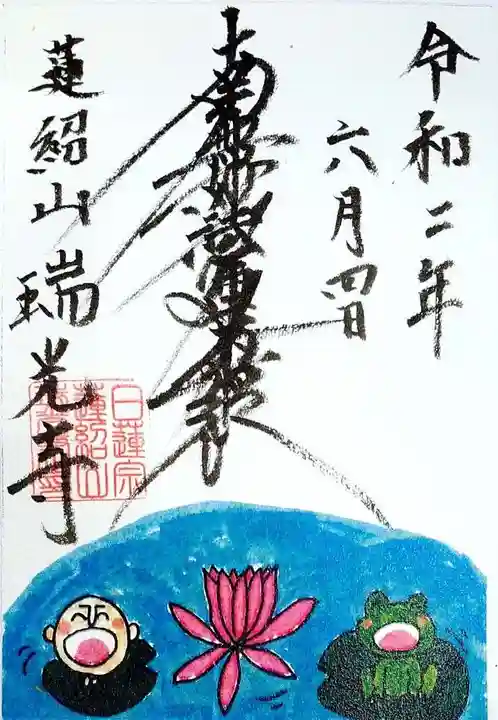 令和二年
六月四日
南無妙法蓮華経
蓮紹山瑞光寺
日蓮宗
蓮紹山